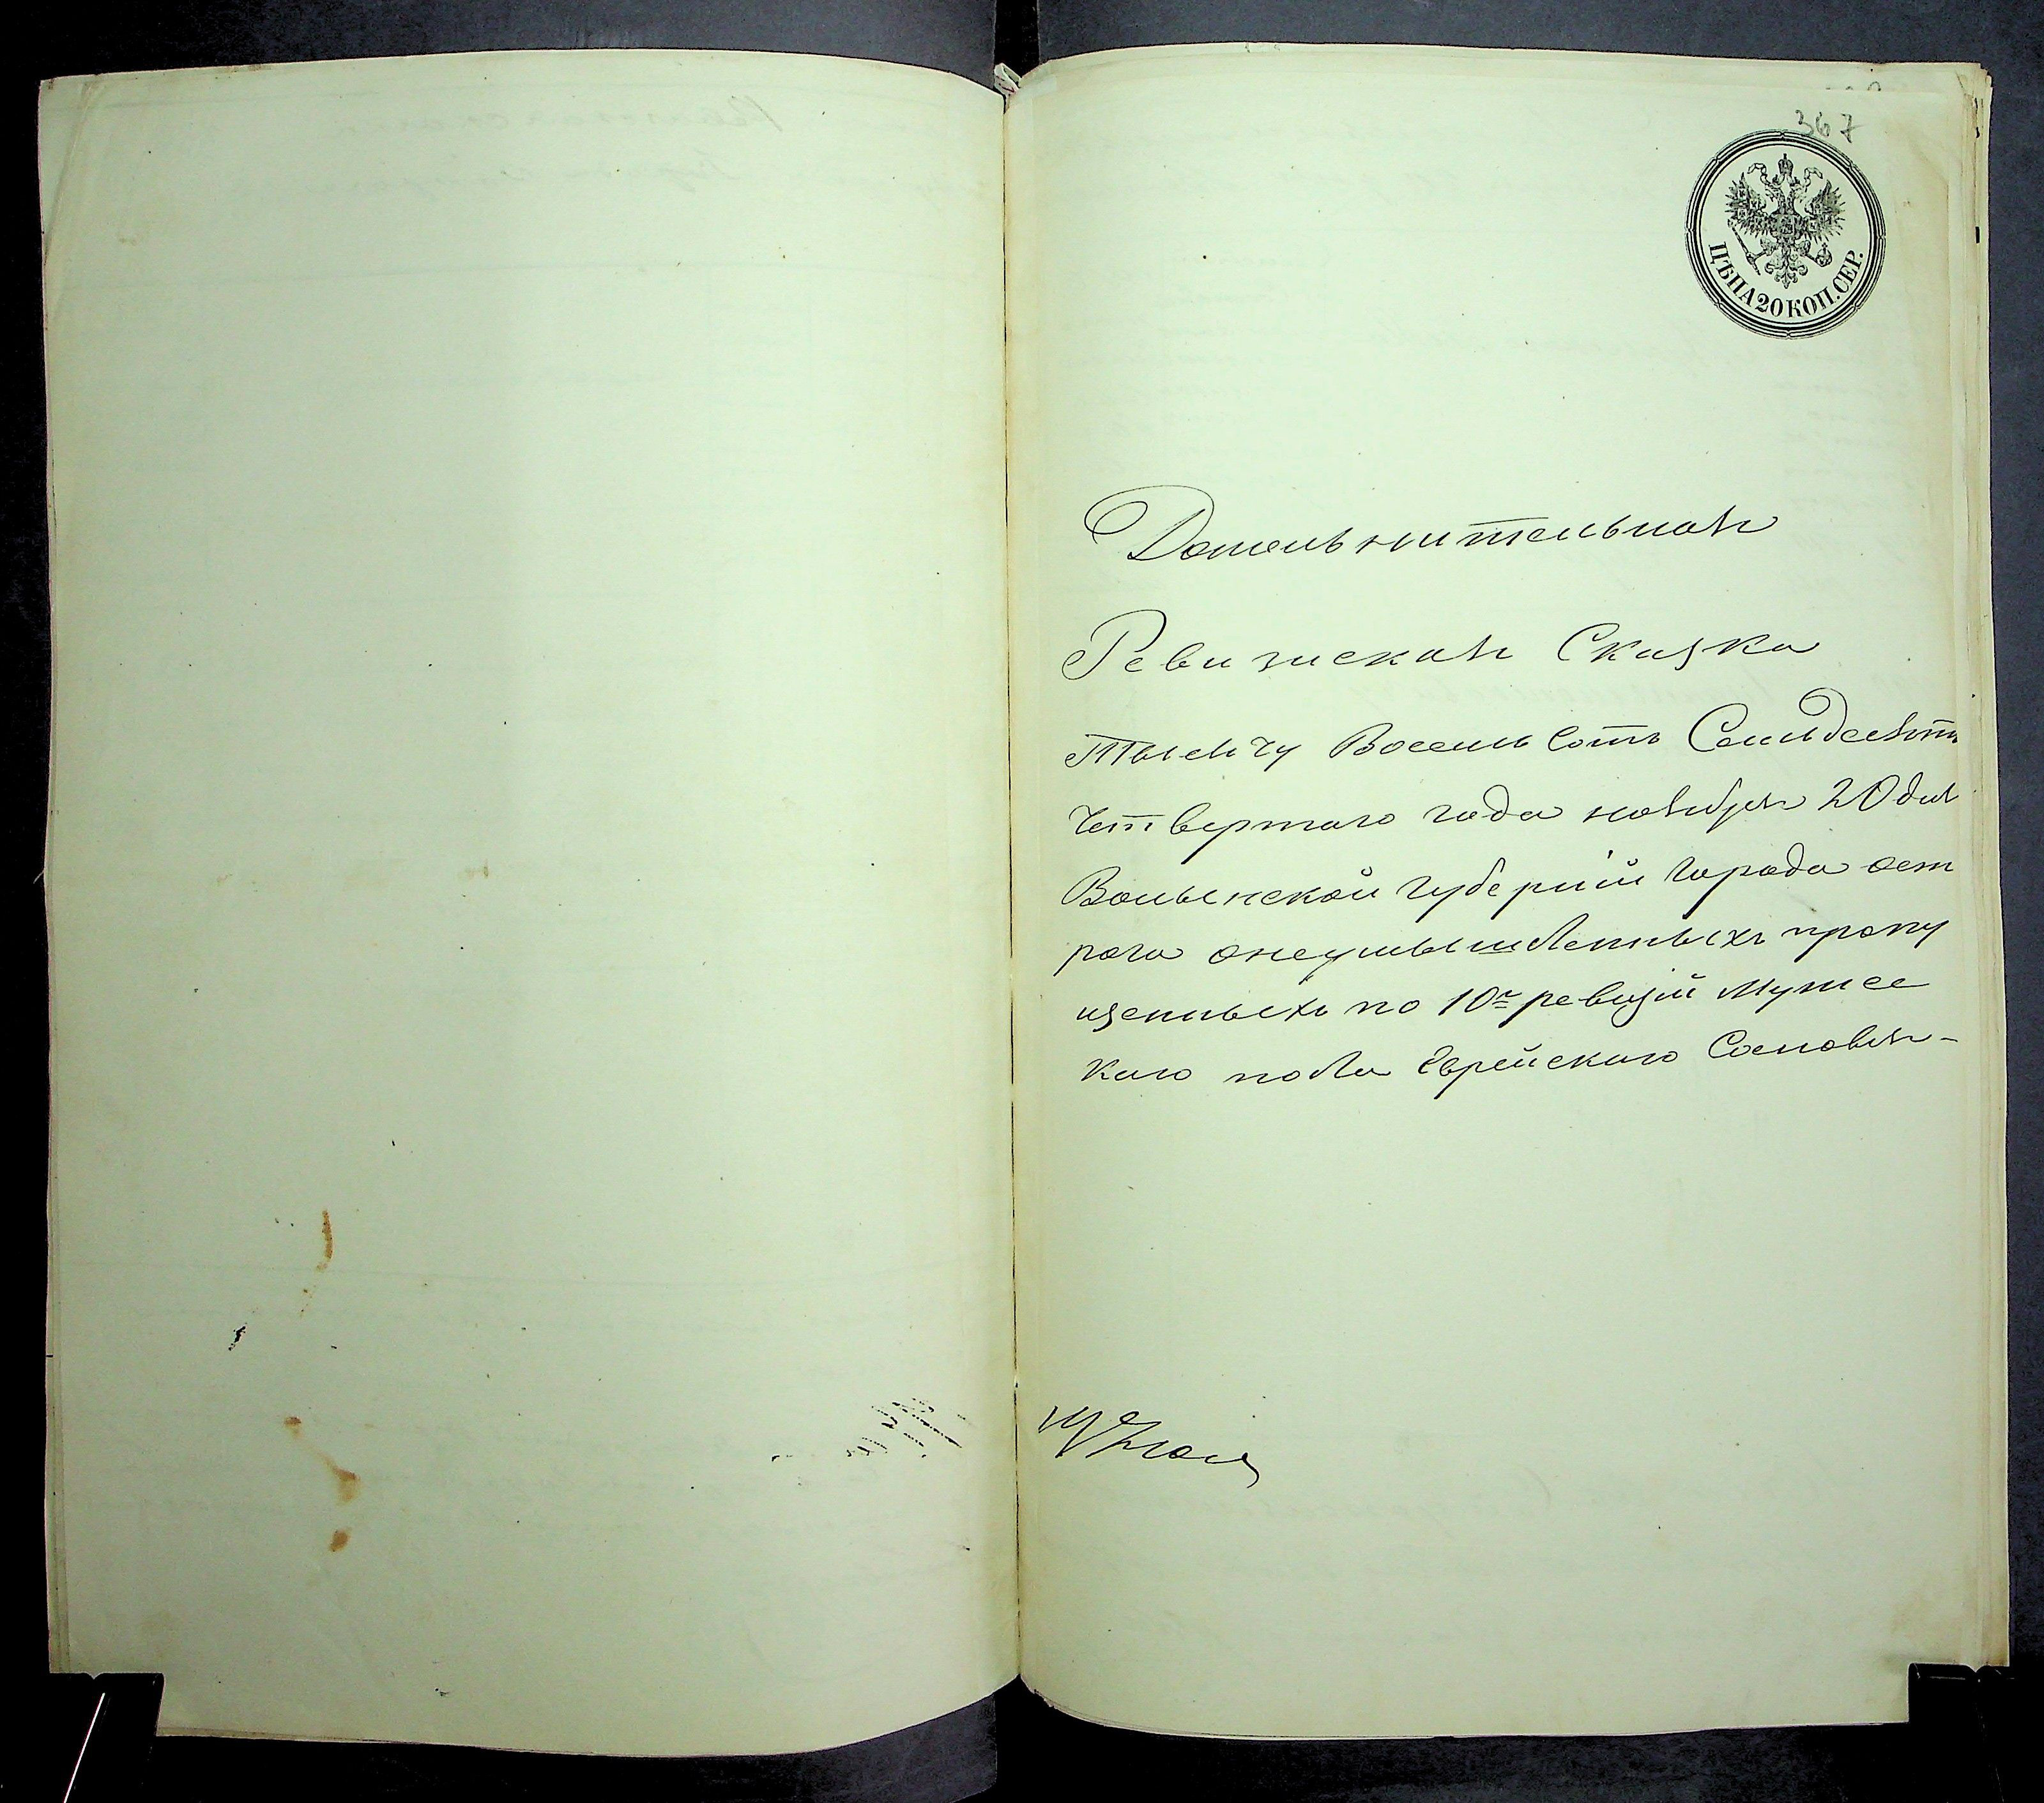 367
ЦѢНА 20 КОП. СЕР.
Дополнительная
Ревизская Сказка
Тысячу Восемь Сотъ Семьдесятъ
Четвертаго года ноября 20 дня
Волынской губерніи города Ост
рога онеумышленныхъ пропу
щенныхъ по 10й ревизіи мужес
каго пола Еврейскаго Сословія-